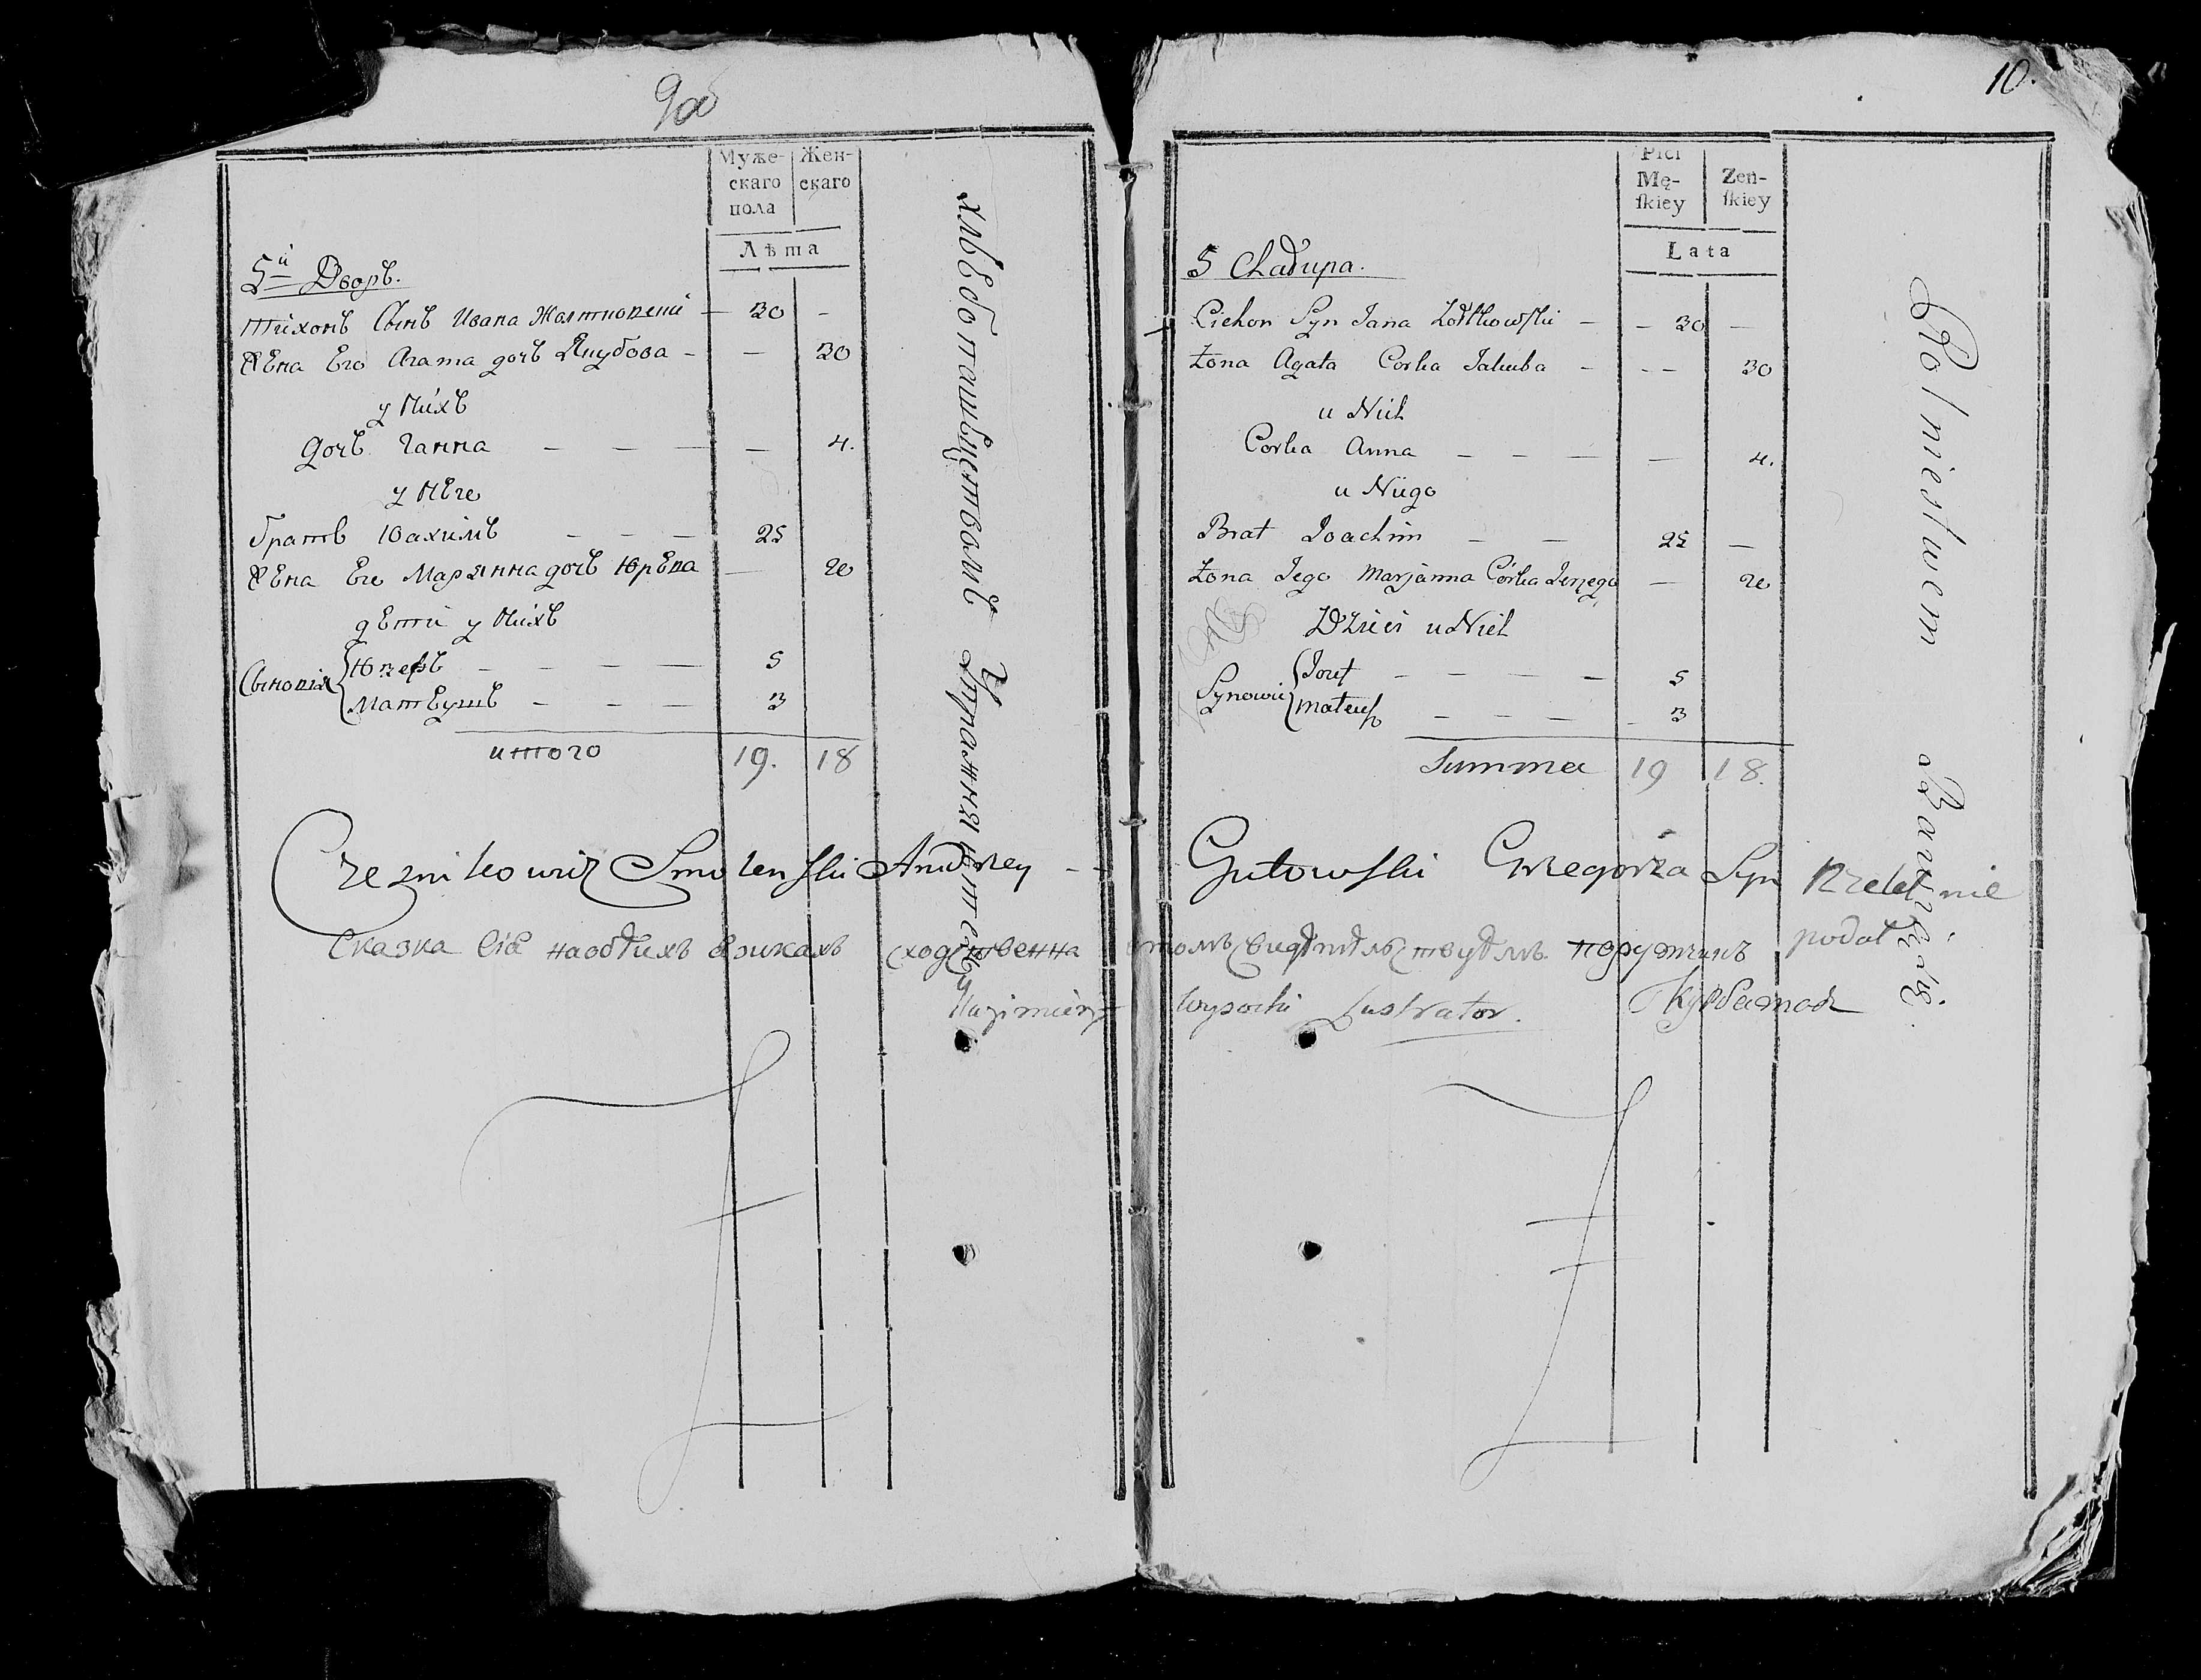 9об
Муже-
скаго
пола
Жен-
скаго
Лѣта
5й Дворъ.
Тихонъ Сынъ Ивана Жолтковский — 30 —
Жена Его Агата дочъ Якубова — — 30
у нихъ
дочъ Ганна — — — — 4.
у него
братъ Юахимъ — — — 25
Жена Его Марянна дочъ Юрева — 20
дети у нихъ
Сыновія { Юзефъ — — — — 5
Матеушъ — — — 3
итого 19. 18
хлебопашествомъ Упражняется
10.
Płci
Mę-
ſkiey
Zeń-
ſkiey
Lata
5 Chałupa.
Cichon Syn Jana Zołtkowſki — — 30 —
Żona Agata Corka Jakuba — — — 30
u Nich
Corka Anna — — — — 4.
u Niego
Brat Joachim — — 25 —
Żona Jego Marjanna Córka Jerzego — 20
Dzieci u Nich
Synowie { Jozef — — — — 5
Mateuſz — — — — 3
Summa 19 18.
Rolnictwem się Bawi
Smolenſki Andrzey — Gutowſki Grzegorza Syn Rzetelnie
podał
Сказка сія на обѣихъ языкахъ сходственна в томъ свидѣтельствуемъ поручикъ
Kazimierz Wysocki Lustrator.